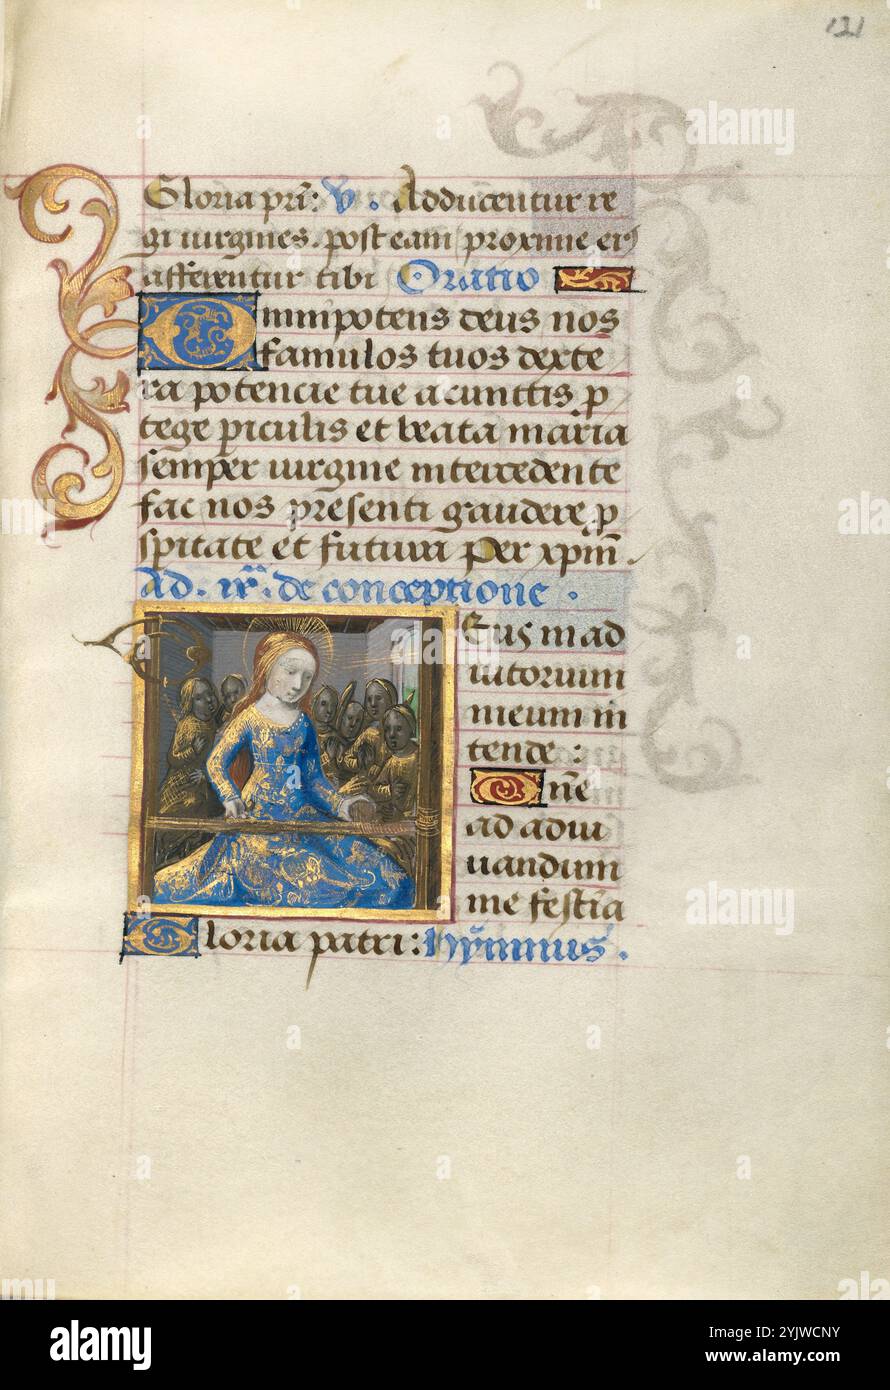 121
Gloria pri: v. Adducentur re
gi uirgines. post eam proxime eiꝰ
afferentur tibi Oratio
Omnipotens deus nos
famulos tuos dexte
ra potencie tue a cunctis p
tege piculis et beata maria
semper uirgine intercedente
fac nos presenti gaudere p
spitate et futura Per xpm.
Ad. ix. de conceptione.
Eus in ad
iutorium
meum in
tende:
Dne
ad adiu
uandum
me festia
Gloria patri: hymnus.
alamy
Image ID: 2YJWCNY
www.alamy.com